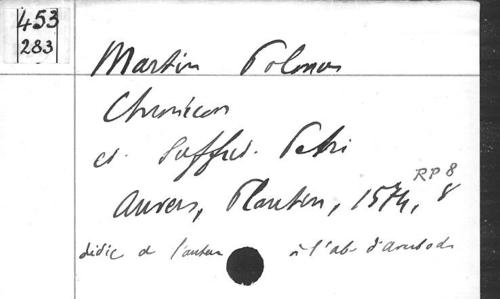 453
283
Martin Polonus
Chronicon
ed. Suffrid. Petri
RP 8
Anvers, Plantin, 1574, 8
dédic de l'auteur à l'ab. d'